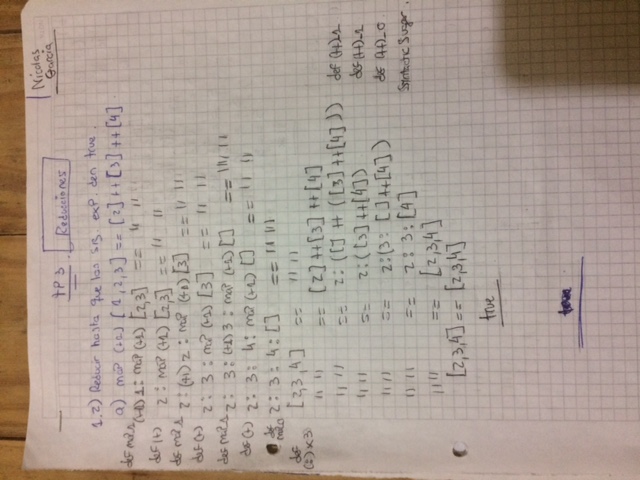 Nicolas
Garcia
TP3 Reducciones
1.2) Reducir hasta que las sig. exp. den true.
a) map (+1) [1,2,3] == [2]++[3]++[4]
def map.1 (+1) 1 : map (+1) [2,3] == " "
def (+) 2 : map (+1) [2,3] == " "
def map.1 2 : (+1) 2 : map (+1) [3] == " "
def (+) 2 : 3 : map (+1) [3] == " "
def map.1 2 : 3 : (+1) 3 : map (+1) [] == " "
def (+) 2 : 3 : 4 : map (+1) [] == " "
def map.0 2 : 3 : 4 : [] == " "
def (:) x 3 [2,3,4] == " "
" " == [2]++[3]++[4]
" " == 2:([] ++ ([3]++[4])) def (++)_1
" " == 2:([3]++[4]) def (++)_1
" " == 2:(3: []++[4]) def (++)_0
" " == 2: 3: [4] Syntactic Sugar.
" " == [2,3,4]
[2,3,4] == [2,3,4]
true